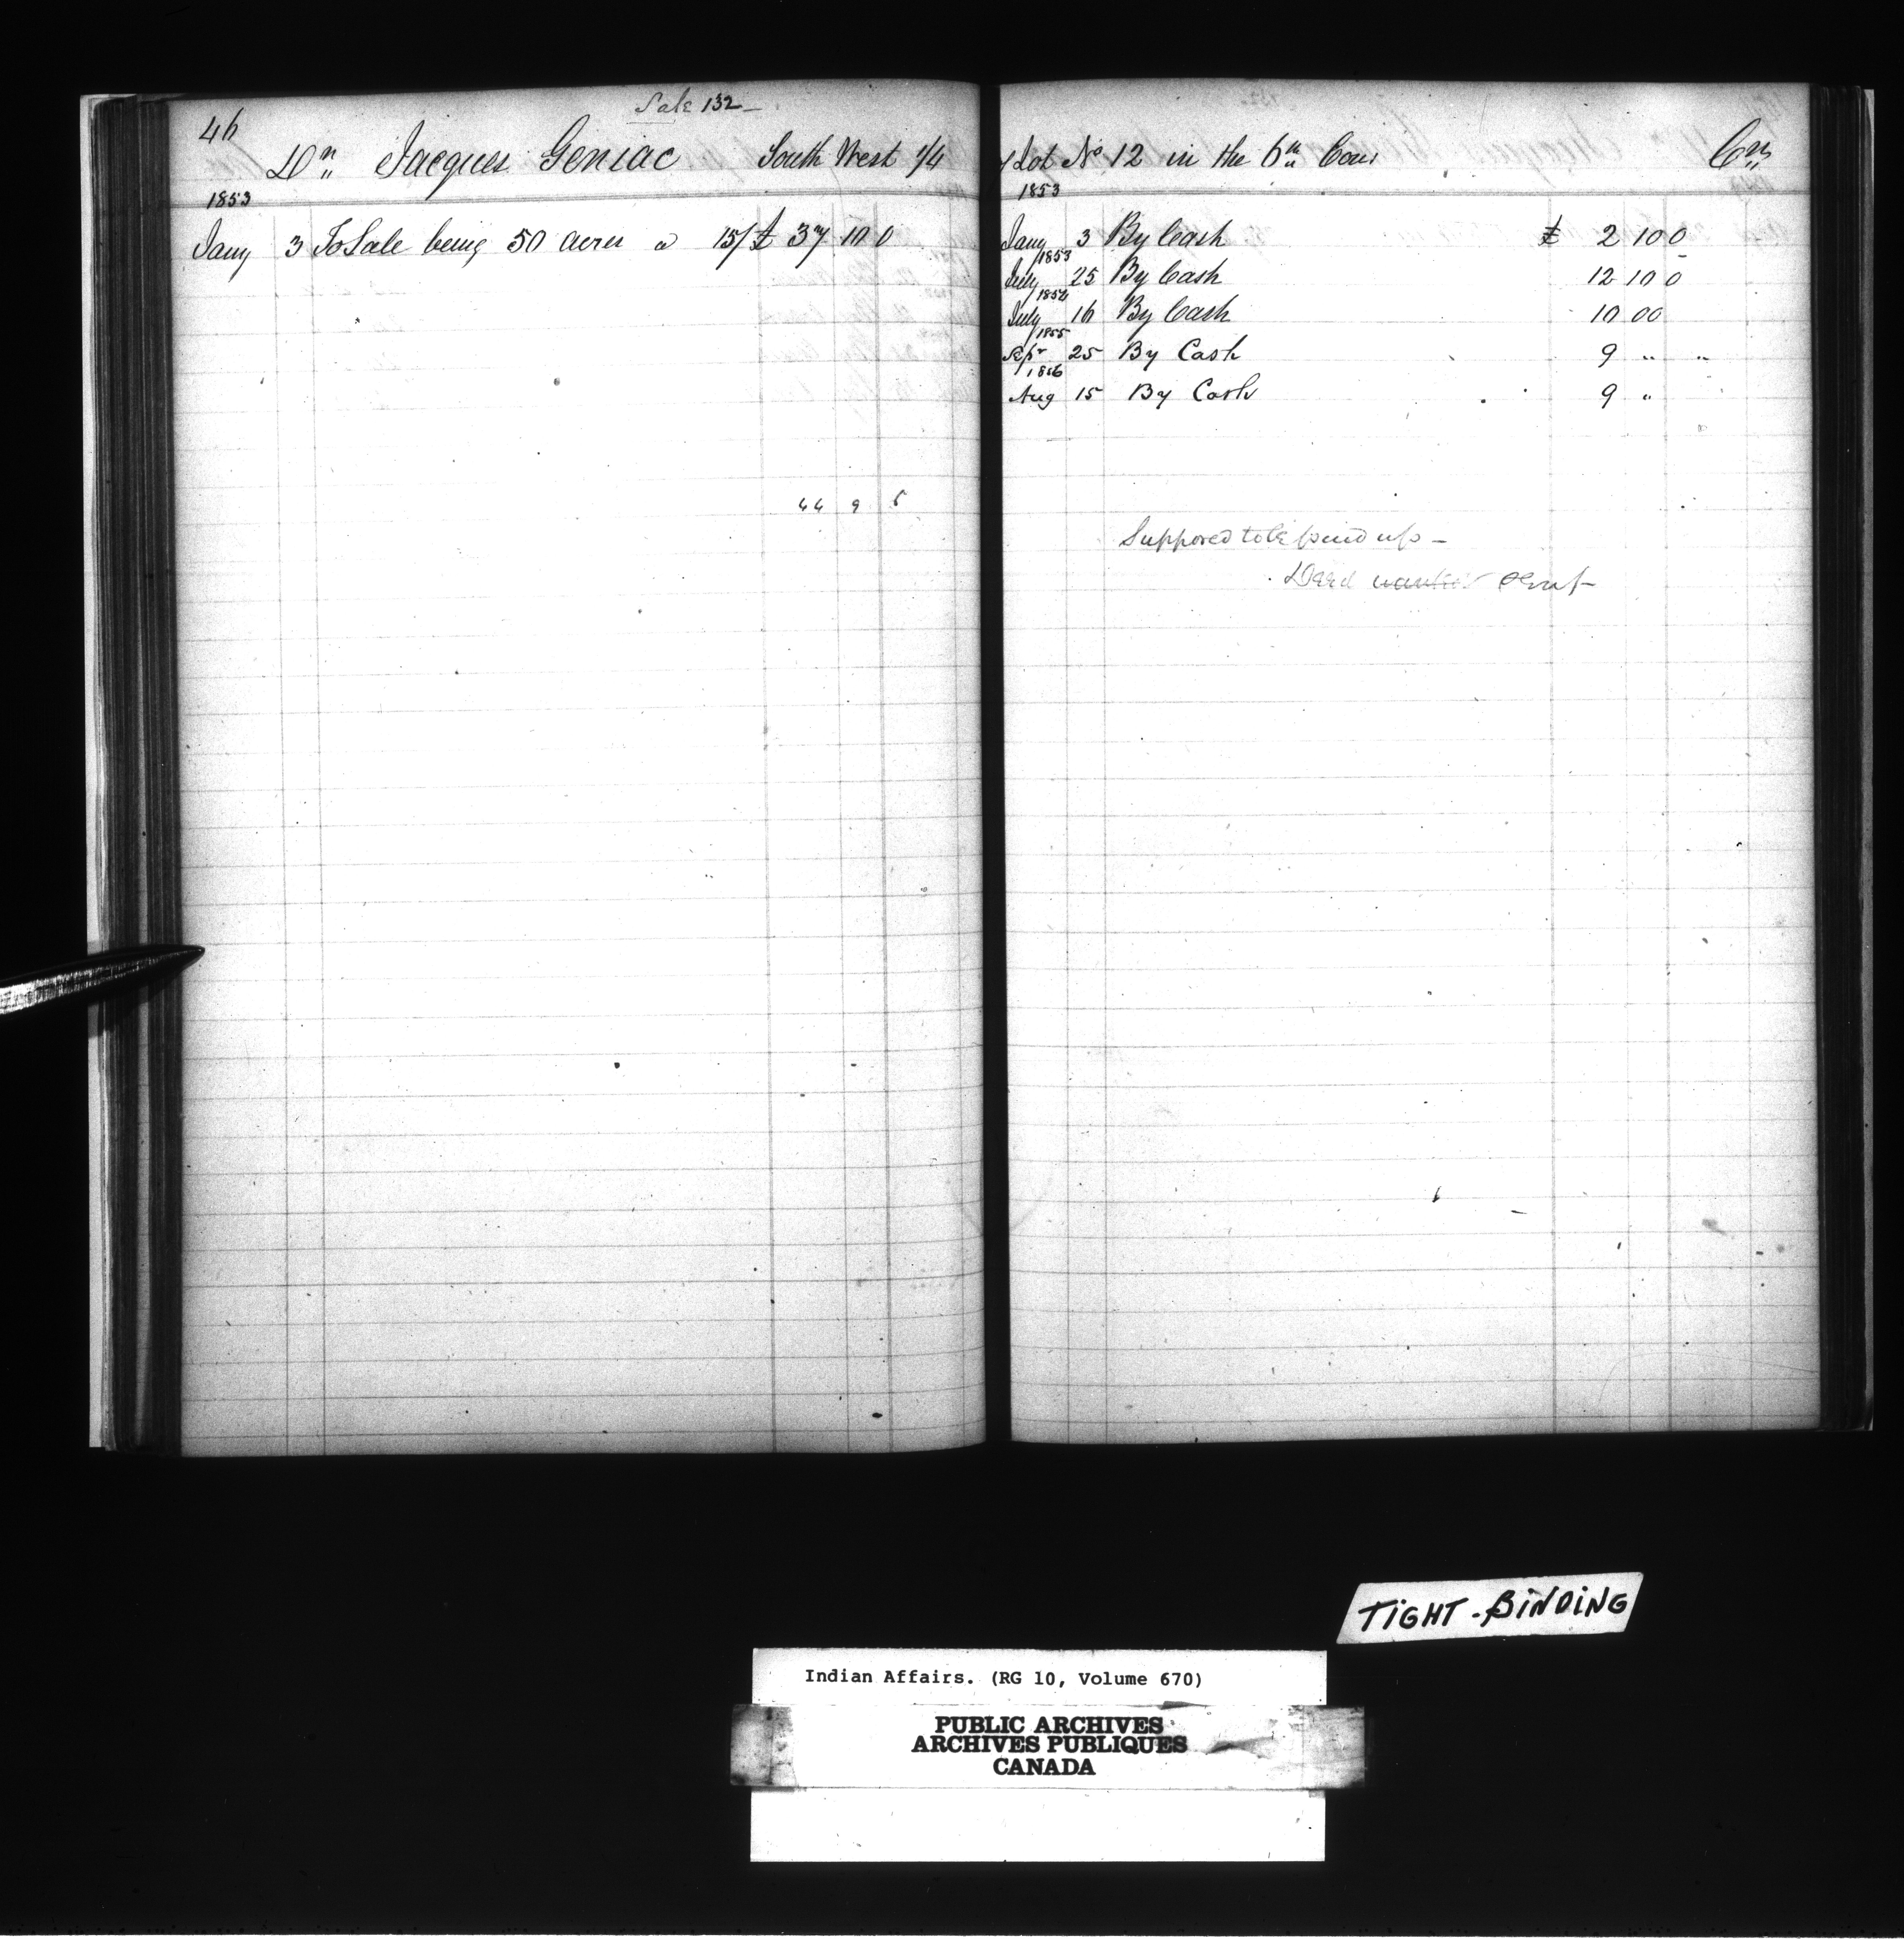 Sale 132
46
Dr Jacques Geniac South West 1/4
1853
Jany 3 To Sale being 50 acres @ 15/ £ 37 10 0
44 9 5
of Lot No 12 in the 6th Con Cr
1853
Jany 3 By Cash £ 2 10 0
1853
July 25 By Cash 12 10 0
1854
July 16 By Cash 10 0 0
1855
Sepr 25 By Cash 9 " "
1856
Aug 15 By Cash 9 "
Supposed to be paid up -
Deed wanted sent
TIGHT-BINDING
Indian Affairs. (RG 10, Volume 670)
PUBLIC ARCHIVES
ARCHIVES PUBLIQUES
CANADA